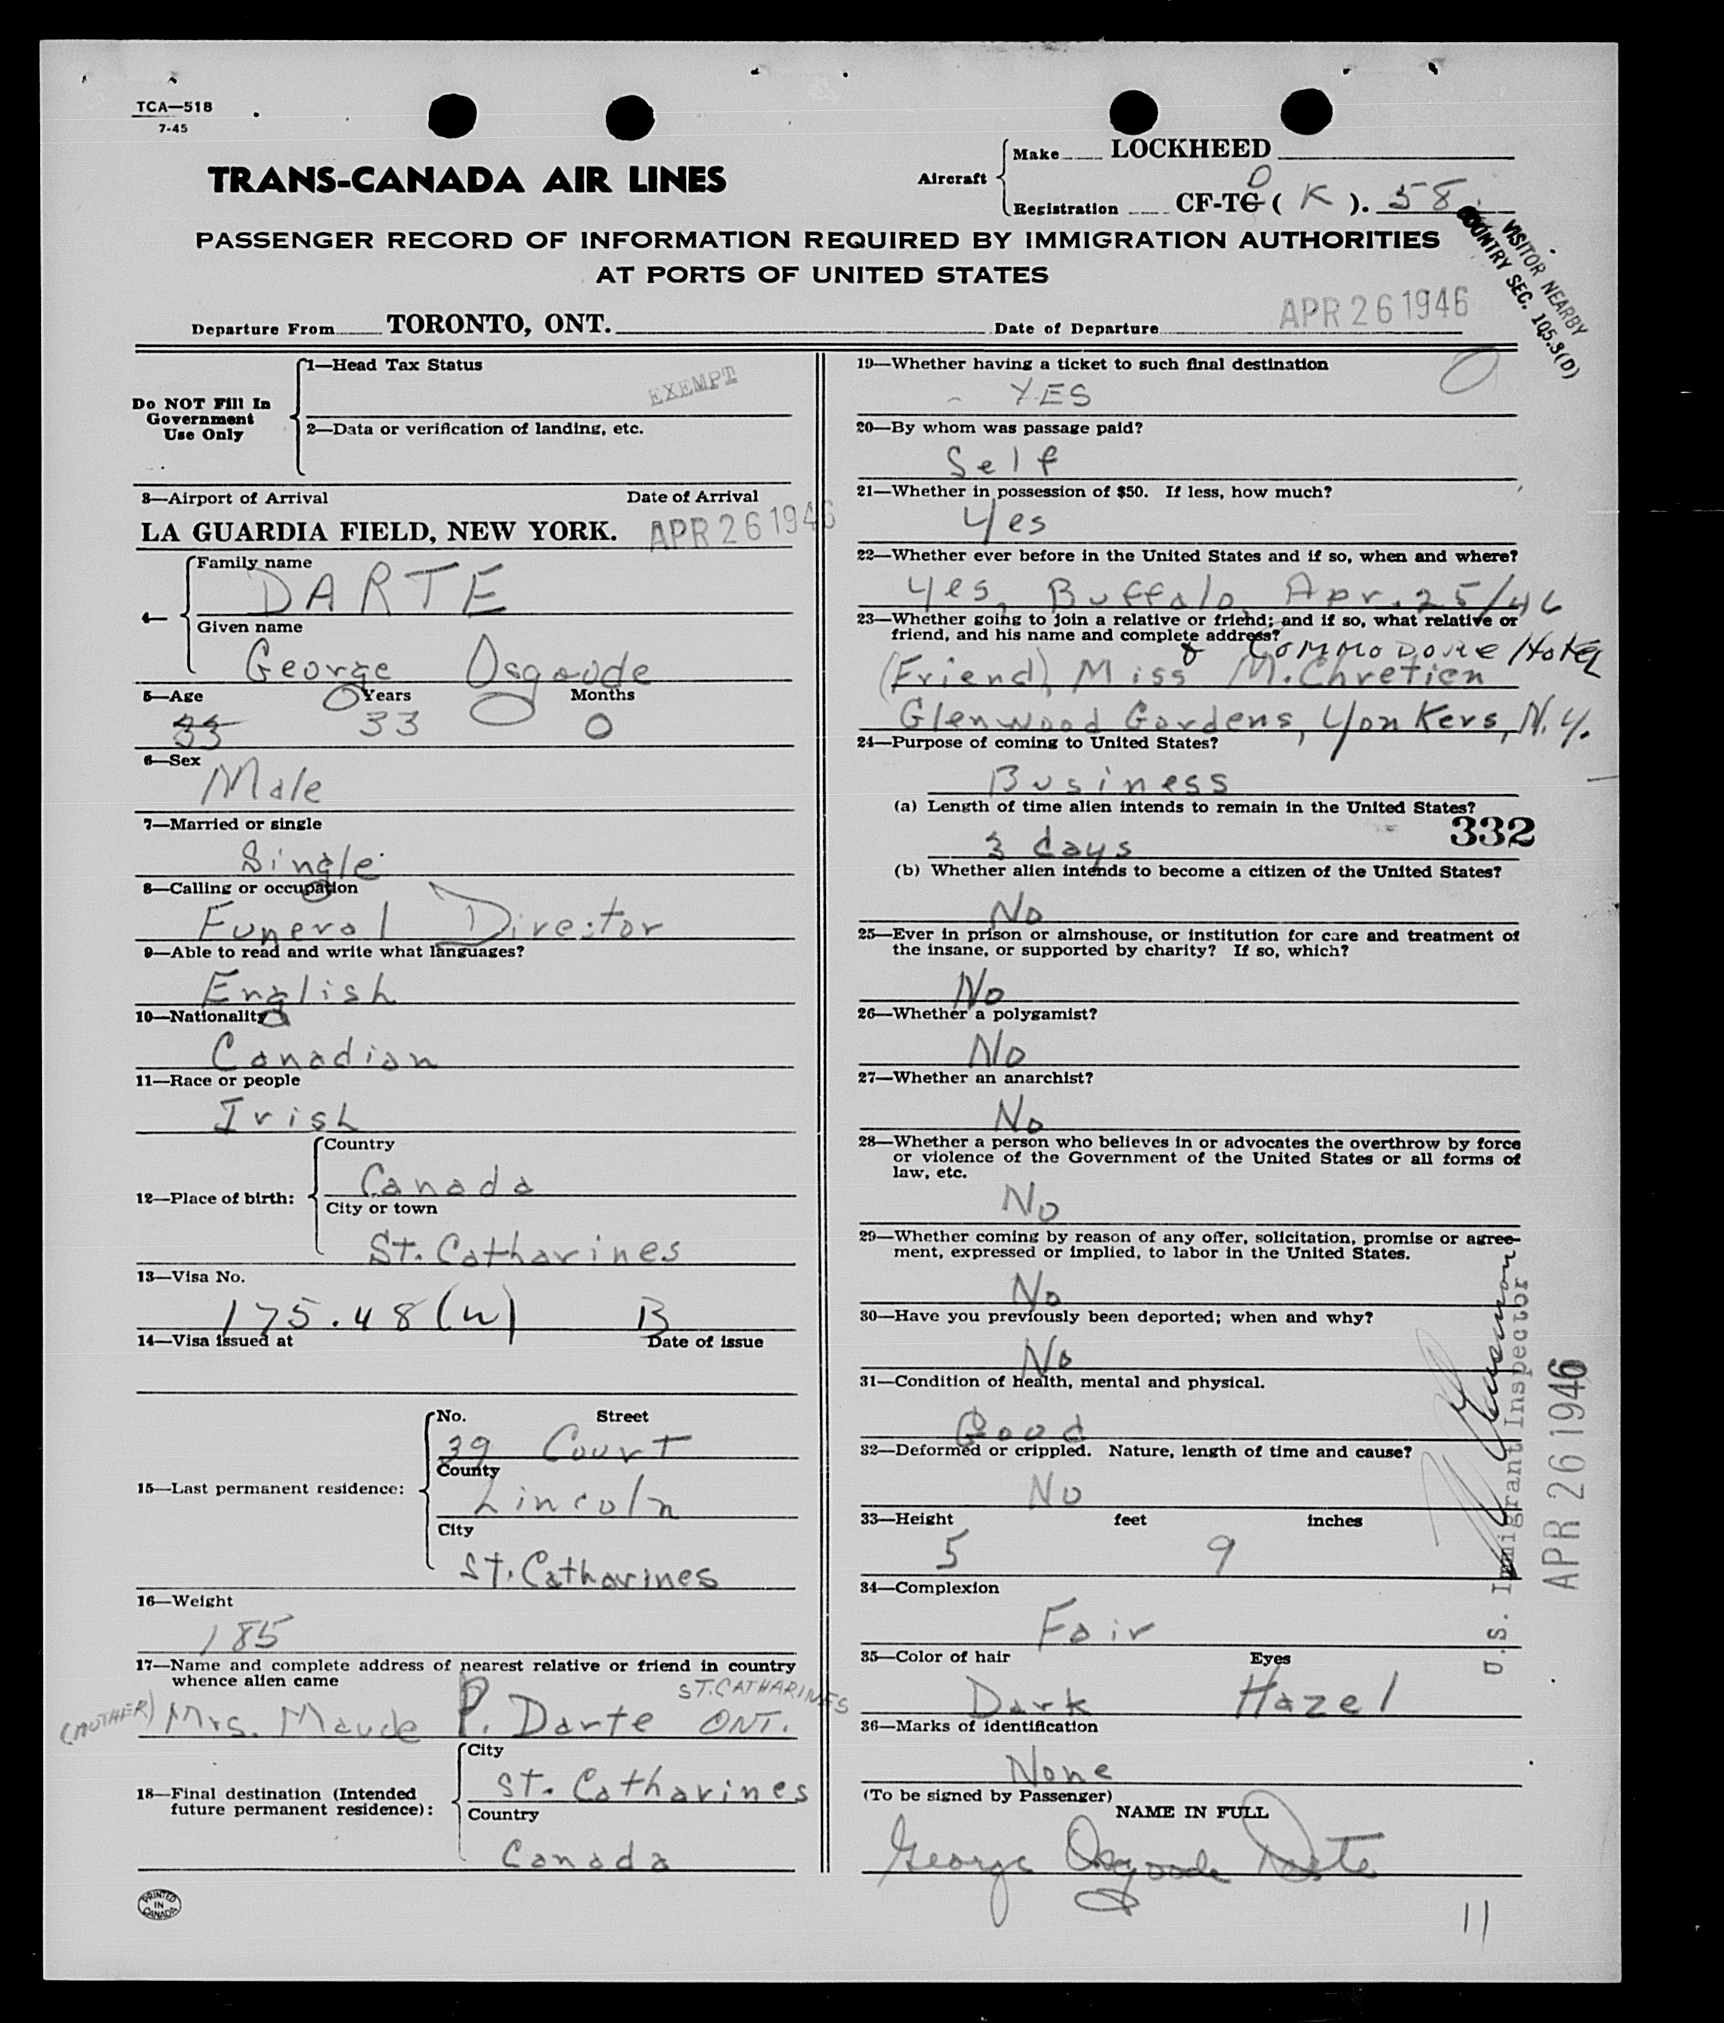 TCA—518
7-45
TRANS-CANADA AIR LINES
Aircraft
Make LOCKHEED
Registration CF-TG D ( K ). 58
PASSENGER RECORD OF INFORMATION REQUIRED BY IMMIGRATION AUTHORITIES
AT PORTS OF UNITED STATES
VISITOR NEARBY
COUNTRY SEC. 105.3(D)
Departure From TORONTO, ONT. Date of Departure APR 26 1946
Do NOT Fill In
Government
Use Only
1—Head Tax Status
EXEMPT
2—Data or verification of landing, etc.
3—Airport of Arrival Date of Arrival
LA GUARDIA FIELD, NEW YORK. APR 26 1946
4—
Family name
DARTE
Given name
George Osgoode
5—Age Years Months
33 33 0
6—Sex
Male
7—Married or single
Single
8—Calling or occupation
Funeral Director
9—Able to read and write what languages?
English
10—Nationality
Canadian
11—Race or people
Irish
12—Place of birth:
Country
Canada
City or town
St. Catharines
13—Visa No.
175.48(W) B
14—Visa issued at Date of issue
15—Last permanent residence:
No. Street
39 Court
County
Lincoln
City
St. Catharines
16—Weight
185
17—Name and complete address of nearest relative or friend in country
whence alien came
ST. CATHARINES
(MOTHER) Mrs. Maude P. Darte ONT.
18—Final destination (Intended
future permanent residence):
City
St. Catharines
Country
Canada
PRINTED
IN
CANADA
19—Whether having a ticket to such final destination
YES
20—By whom was passage paid?
Self
21—Whether in possession of $50. If less, how much?
Yes
22—Whether ever before in the United States and if so, when and where?
Yes, Buffalo, Apr. 25/46
23—Whether going to join a relative or friend; and if so, what relative or
friend, and his name and complete address?
& COMMODORE Hotel
(Friend) Miss M. Chretien
Glenwood Gardens, Yonkers, N.Y.
24—Purpose of coming to United States?
Business
(a) Length of time alien intends to remain in the United States?
3 days
332
(b) Whether alien intends to become a citizen of the United States?
No
25—Ever in prison or almshouse, or institution for care and treatment of
the insane, or supported by charity? If so, which?
No
26—Whether a polygamist?
No
27—Whether an anarchist?
No
28—Whether a person who believes in or advocates the overthrow by force
or violence of the Government of the United States or all forms of
law, etc.
No
29—Whether coming by reason of any offer, solicitation, promise or agree-
ment, expressed or implied, to labor in the United States.
No
30—Have you previously been deported; when and why?
No
31—Condition of health, mental and physical.
Good
32—Deformed or crippled. Nature, length of time and cause?
No
33—Height feet inches
5 9
34—Complexion
Fair
35—Color of hair Eyes
Dark Hazel
36—Marks of identification
None
(To be signed by Passenger)
NAME IN FULL
George Osgoode Darte
U.S. Immigrant Inspector
APR 26 1946
11